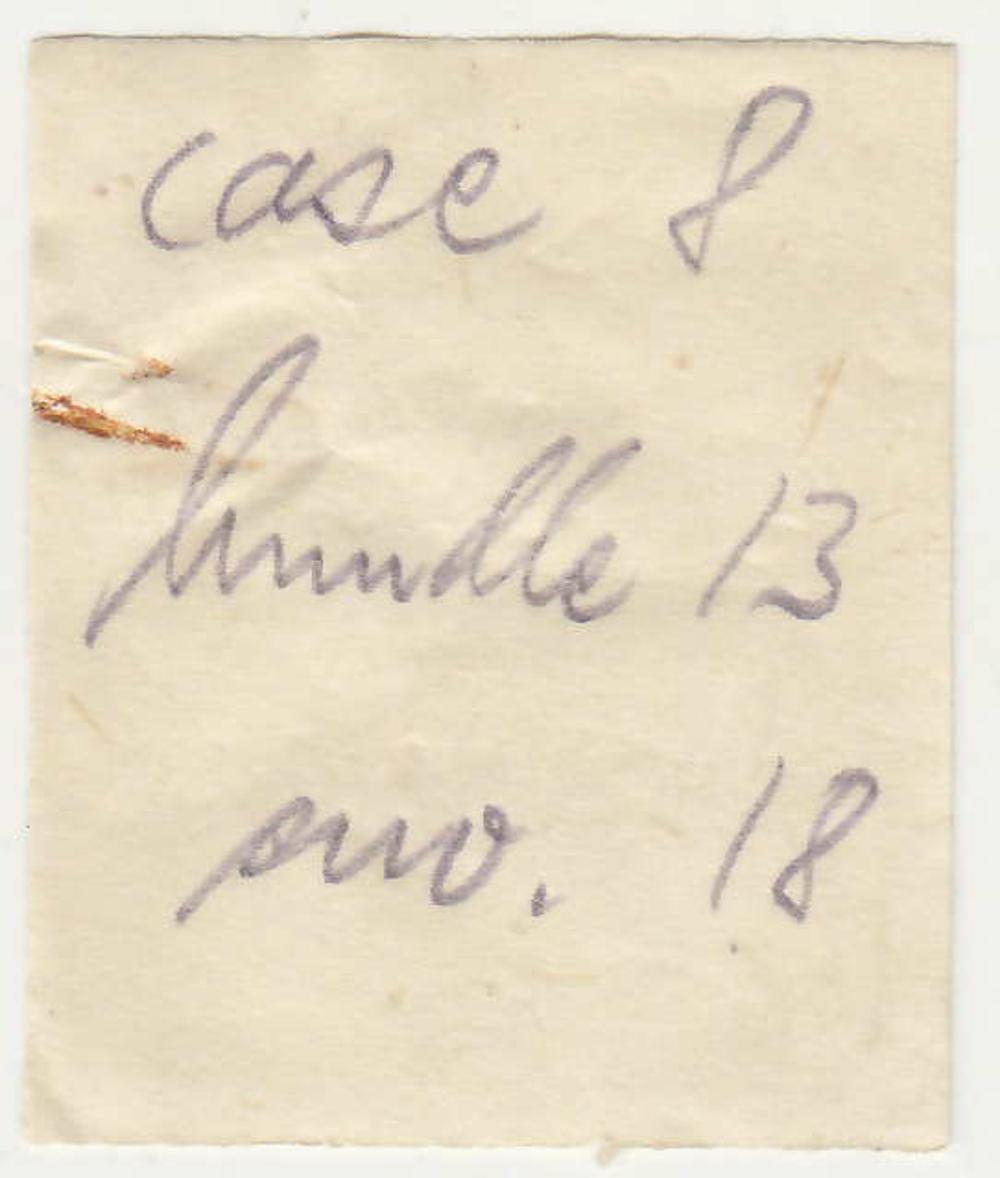 case 8
bundle 13
no. 18